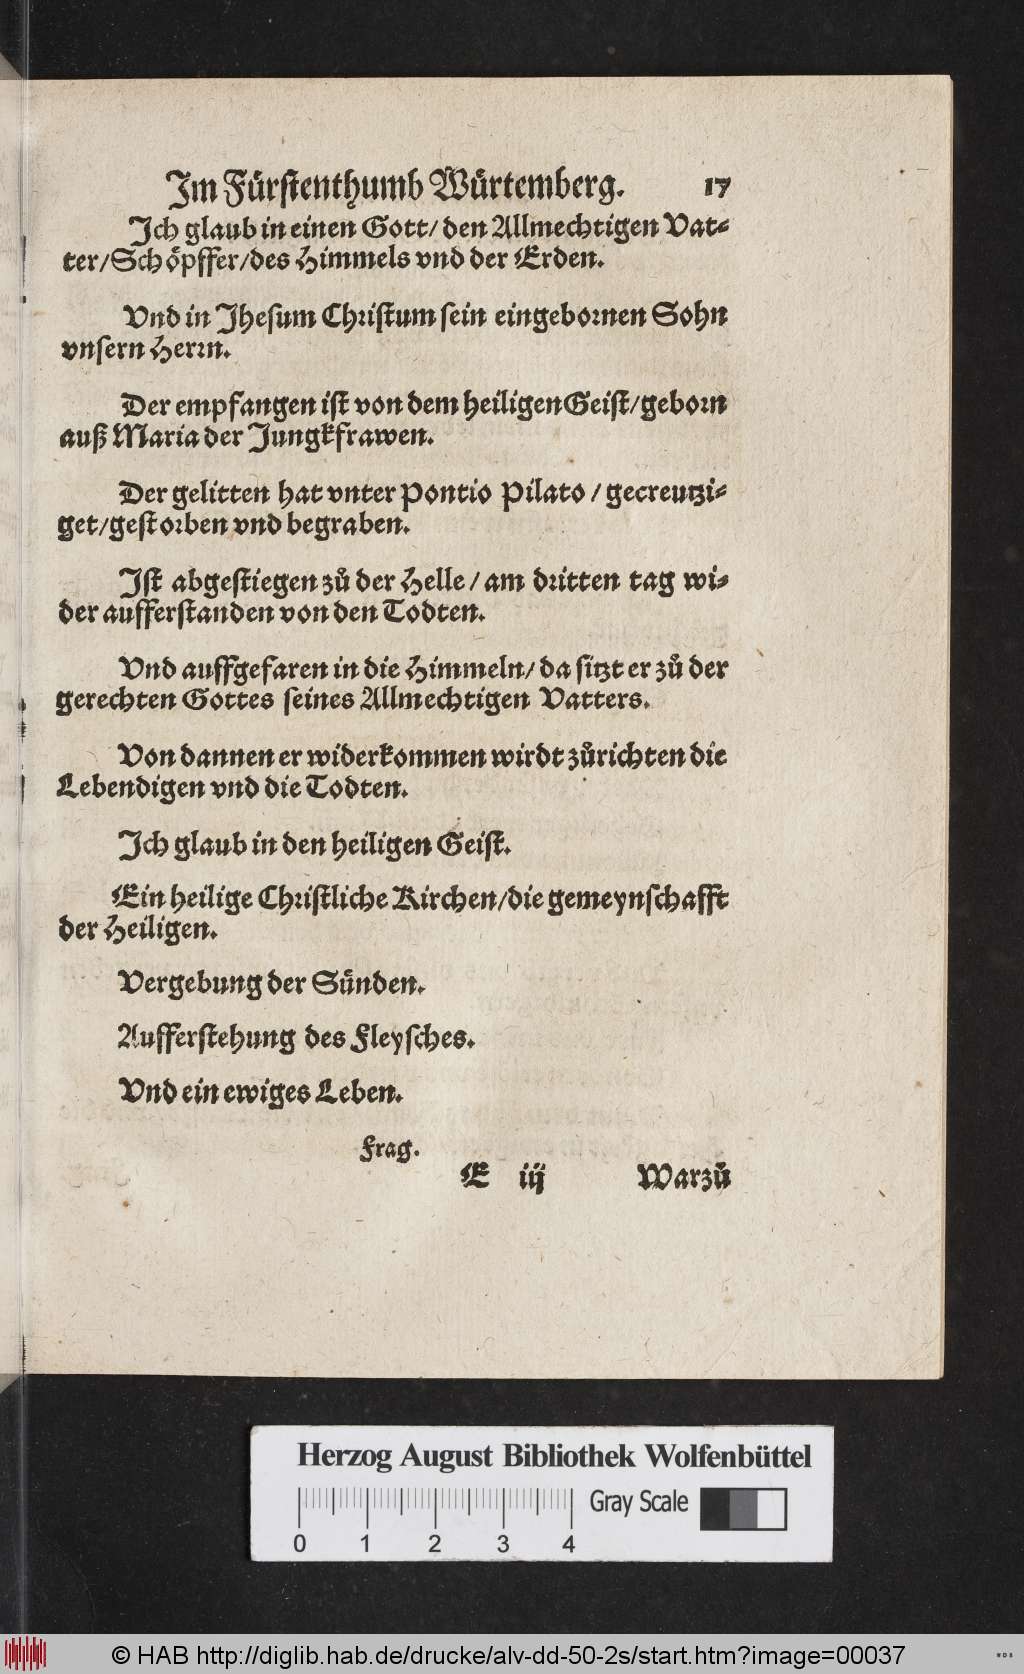 Im Fürstenthumb Würtemberg. 17
Ich glaub in einen Gott/ den Allmechtigen Vat⸗
ter/Schöpffer/des Himmels vnd der Erden.
Vnd in Jhesum Christum sein eingebornen Sohn
vnsern Herrn.
Der empfangen ist von dem heiligen Geist/geborn
auß Maria der Jungkfrawen.
Der gelitten hat vnter Pontio Pilato / gecreutzi⸗
get/gestorben vnd begraben.
Ist abgestiegen zů der Helle / am dritten tag wi⸗
der aufferstanden von den Todten.
Vnd auffgefaren in die Himmeln/ da sitzt er zů der
gerechten Gottes seines Allmechtigen Vatters.
Von dannen er widerkommen wirdt zůrichten die
Lebendigen vnd die Todten.
Ich glaub in den heiligen Geist.
Ein heilige Christliche Kirchen/die gemeynschafft
der Heiligen.
Vergebung der Sünden.
Aufferstehung des Fleysches.
Vnd ein ewiges Leben.
Frag.
E iij Warzů
Herzog August Bibliothek Wolfenbüttel
Gray Scale
0 1 2 3 4
© HAB http://diglib.hab.de/drucke/alv-dd-50-2s/start.htm?image=00037